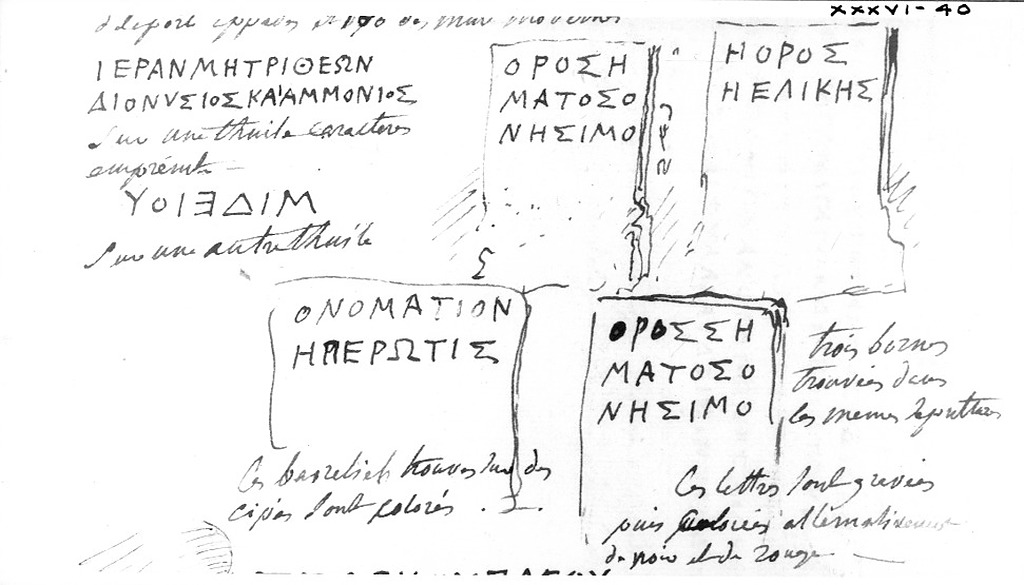 XXXVI-40
ΙΕΡΑΝΜΗΤΡΙΘΕΩΝ
ΔΙΟΝΥΣΙΟΣΚΑΙΑΜΜΟΝΙΟΣ
Sur une thuile caracteres
empreint
ΥΟΙΞΔΙΜ
Sur une autre thuile
ΟΡΟΣΗ
ΜΑΤΟΣΟ
ΝΗΣΙΜΟ
ΗΟΡΟΣ
ΗΕΛΙΚΗΣ
Σ
ΟΝΟΜΑΤΙΟΝ
ΗΠΕΡΩΤΙΣ
ΟΡΟΣΣΗ
ΜΑΤΟΣΟ
ΝΗΣΙΜΟ
trois bornes
trouvées dans
les memes sepultures
Ces basreliefs trouves sur des
cipes sont colorés
Ces lettres sont gravées
puis colorées alternativement
de noir et de rouge